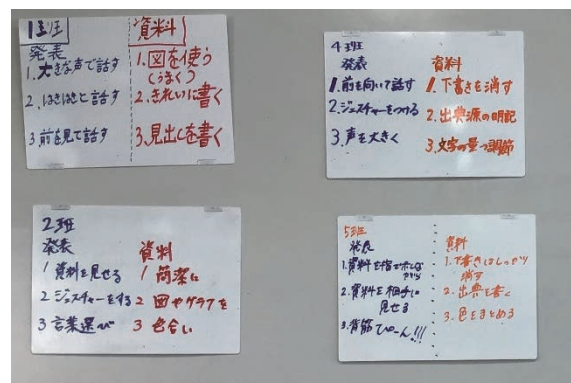 1班
発表
1.大きな声で話す
2.はきはきと話す
3.前を見て話す
資料
1.図を使う
(うまく)
2.きれいに書く
3.見出しを書く
4班
発表
1.前を向いて話す
2.ジェスチャーをつける
3.声を大きく
資料
1.下書きを消す
2.出典源の明記
3.文字の量の調節
2班
発表
1 資料を見せる
2 ジェスチャーをする
3 言葉選び
資料
1 簡潔に
2 図やグラフを
3 色合い
5班
発表
1.資料を指で示しながら
2.資料を相手に
見せる
3.背筋ぴーん!!!
資料
1.下書きはしっかり
消す
2.出典を書く
3.色をまとめる